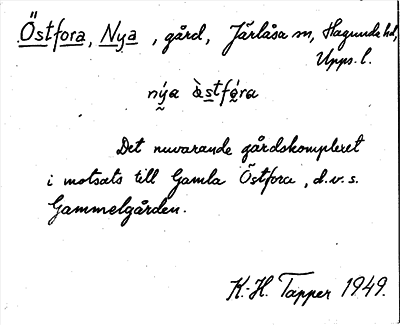 Östfora, Nya, gård, Järlåsa sn, Hagunda hd,
Upps. l.
nýa àstfóra
Det nuvarande gårdskomplexet
i motsats till Gamla Östfora, d.v.s.
Gammelgården.
K.-H. Tapper 1949.